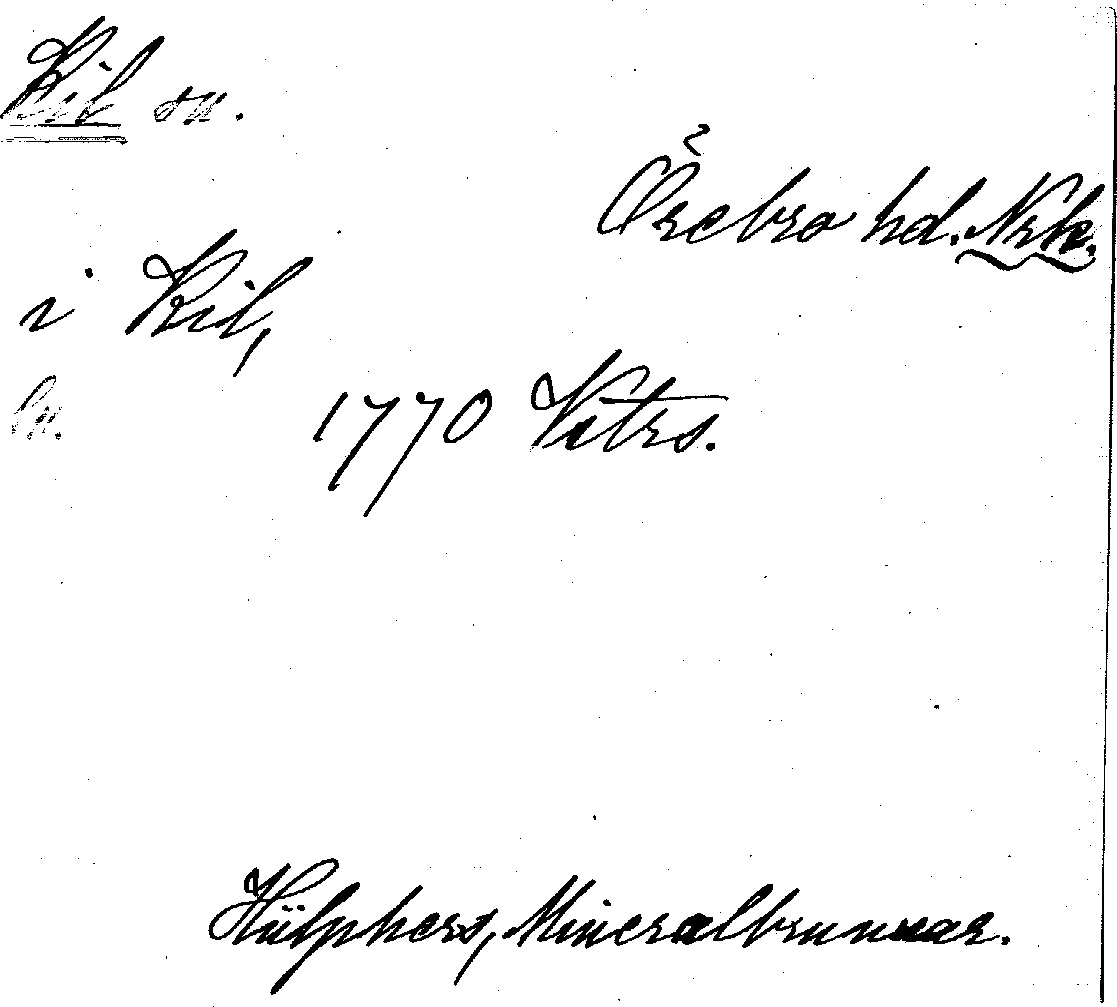 Kil sn.
Örebro hd. Nrk.
i Kil,
ln.
1770 Vitrs.
Hülphers, Mineralbrunnar.